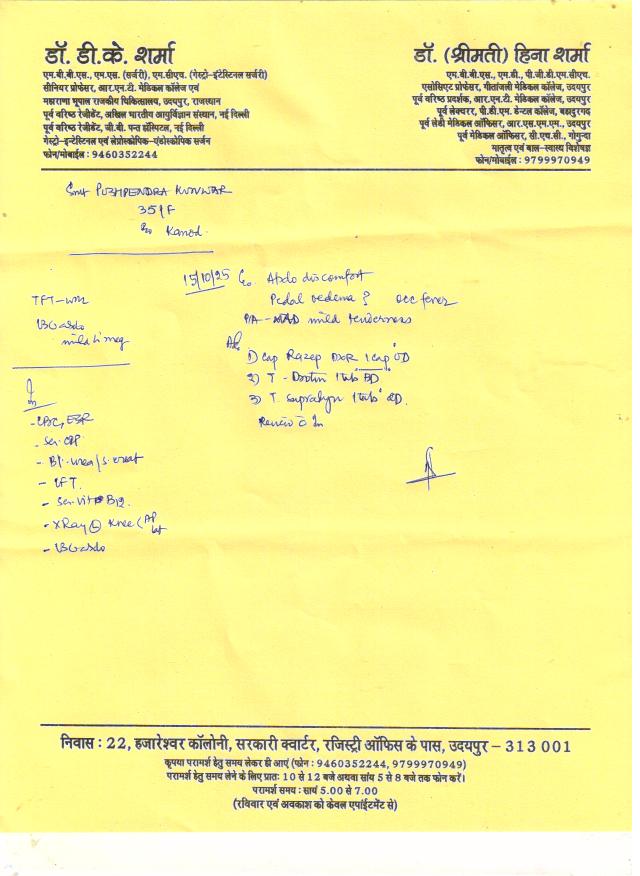 डॉ. डी.के. शर्मा
एम.बी.बी.एस., एम.एस. (सर्जरी), एम.सीएच. (गेस्ट्रो-इंटेस्टिनल सर्जरी)
सीनियर प्रोफेसर, आर.एन.टी. मेडिकल कॉलेज एवं
महाराणा भूपाल राजकीय चिकित्सालय, उदयपुर, राजस्थान
पूर्व वरिष्ठ रेजीडेंट, अखिल भारतीय आयुर्विज्ञान संस्थान, नई दिल्ली
पूर्व वरिष्ठ रेजीडेंट, जी.बी. पन्त हॉस्पिटल, नई दिल्ली
गेस्ट्रो-इन्टेस्टिनल एवं लेप्रोस्कोपिक-एंडोस्कोपिक सर्जन
फोन/मोबाईल : 9460352244
डॉ. (श्रीमती) हिना शर्मा
एम.बी.बी.एस., एम.डी., पी.जी.डी.एम.सीएच.
एसोसिएट प्रोफेसर, गीतांजली मेडिकल कॉलेज, उदयपुर
पूर्व वरिष्ठ प्रदर्शक, आर.एन.टी. मेडिकल कॉलेज, उदयपुर
पूर्व लेक्चरर, पी.डी.एम. डेन्टल कॉलेज, बहादुरगढ़
पूर्व लेडी मेडिकल ऑफिसर, आर.एस.एम.एम., उदयपुर
पूर्व मेडिकल ऑफिसर, सी.एच.सी., गोगुन्दा
मातृत्व एवं बाल-स्वास्थ्य विशेषज्ञ
फोन/मोबाईल : 9799970949
Smt PUSHPENDRA KUNWAR
35/F
Kanod
15/10/25 C/o Abdo discomfort
Pedal oedema ? occ fever
P/A - mild tenderness
1) Cap Razep DXR 1 cap OD
2) T - Dotin 1 tab BD
3) T. Supralyn 1 tab OD
Review c In
TFT-WNL
USG abdo
mild H'meg
In
- CBC, ESR
- Ser. CRP
- Bl. urea/S. creat
- LFT.
- Ser. Vit B12.
- XRay Knee (AP
Lat
- USG abdo
निवास : 22, हजारेश्वर कॉलोनी, सरकारी क्वार्टर, रजिस्ट्री ऑफिस के पास, उदयपुर – 313 001
कृपया परामर्श हेतु समय लेकर ही आएं (फोन : 9460352244, 9799970949)
परामर्श हेतु समय लेने के लिए प्रातः 10 से 12 बजे अथवा सांय 5 से 8 बजे तक फोन करें।
परामर्श समय : सायं 5.00 से 7.00
(रविवार एवं अवकाश को केवल एपॉइंटमेंट से)